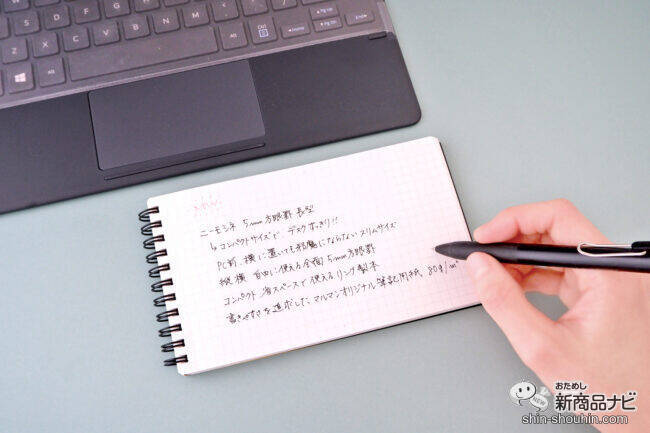 Z
X
C
V
B
N
M
Alt
Alt
Ctrl
Home
PgUp
PgDn
End
ニーモシネ 5mm方眼罫 長型
↳コンパクトサイズで、デスクすっきり!!
PC前、横に置いても邪魔にならないスリムサイズ
縦横自由に使える全面5mm方眼罫
コンパクト、省スペースで使えるリング製本
書きやすさを追求したマルマンオリジナル筆記用紙、80g/m²
おためし
NEW
新商品ナビ
shin-shouhin.com